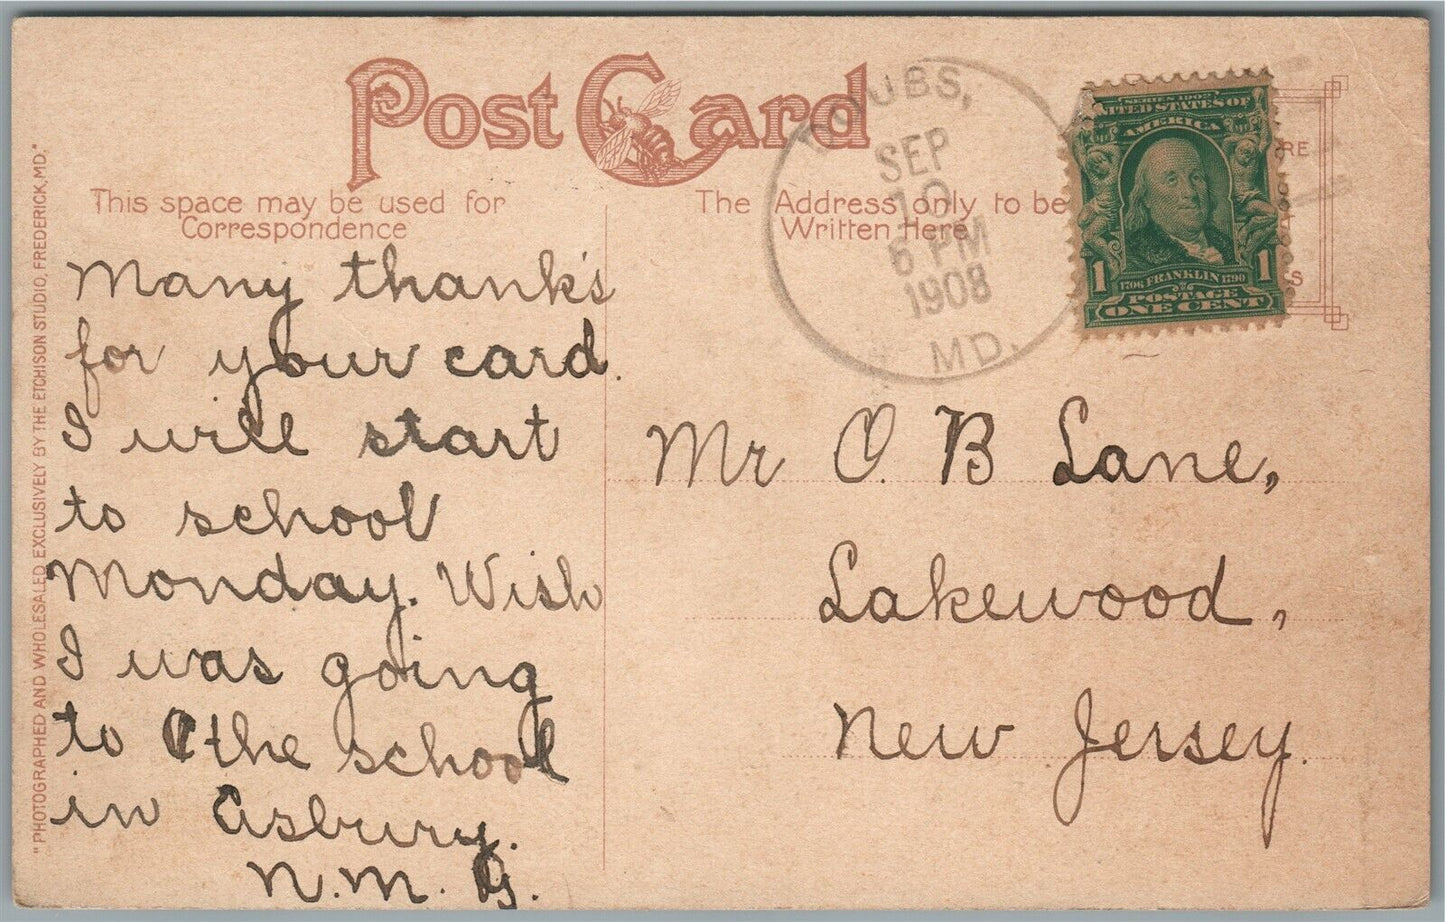 Post Card
This space may be used for
Correspondence
The Address only to be
Written Here
RE
S
"PHOTOGRAPHED AND WHOLESALED EXCLUSIVELY BY THE ETCHISON STUDIO, FREDERICK, MD."
DOUBS,
SEP
10
6 PM
1908
MD.
SERIES 1902
UNITED STATES OF
AMERICA
1706 FRANKLIN 1790
1 1
POSTAGE
ONE CENT
Many thank's
for your card.
I will start
to school
Monday. Wish
I was going
to the school
in Asbury.
N. M. G.
Mr O. B Lane,
Lakewood,
New Jersey.